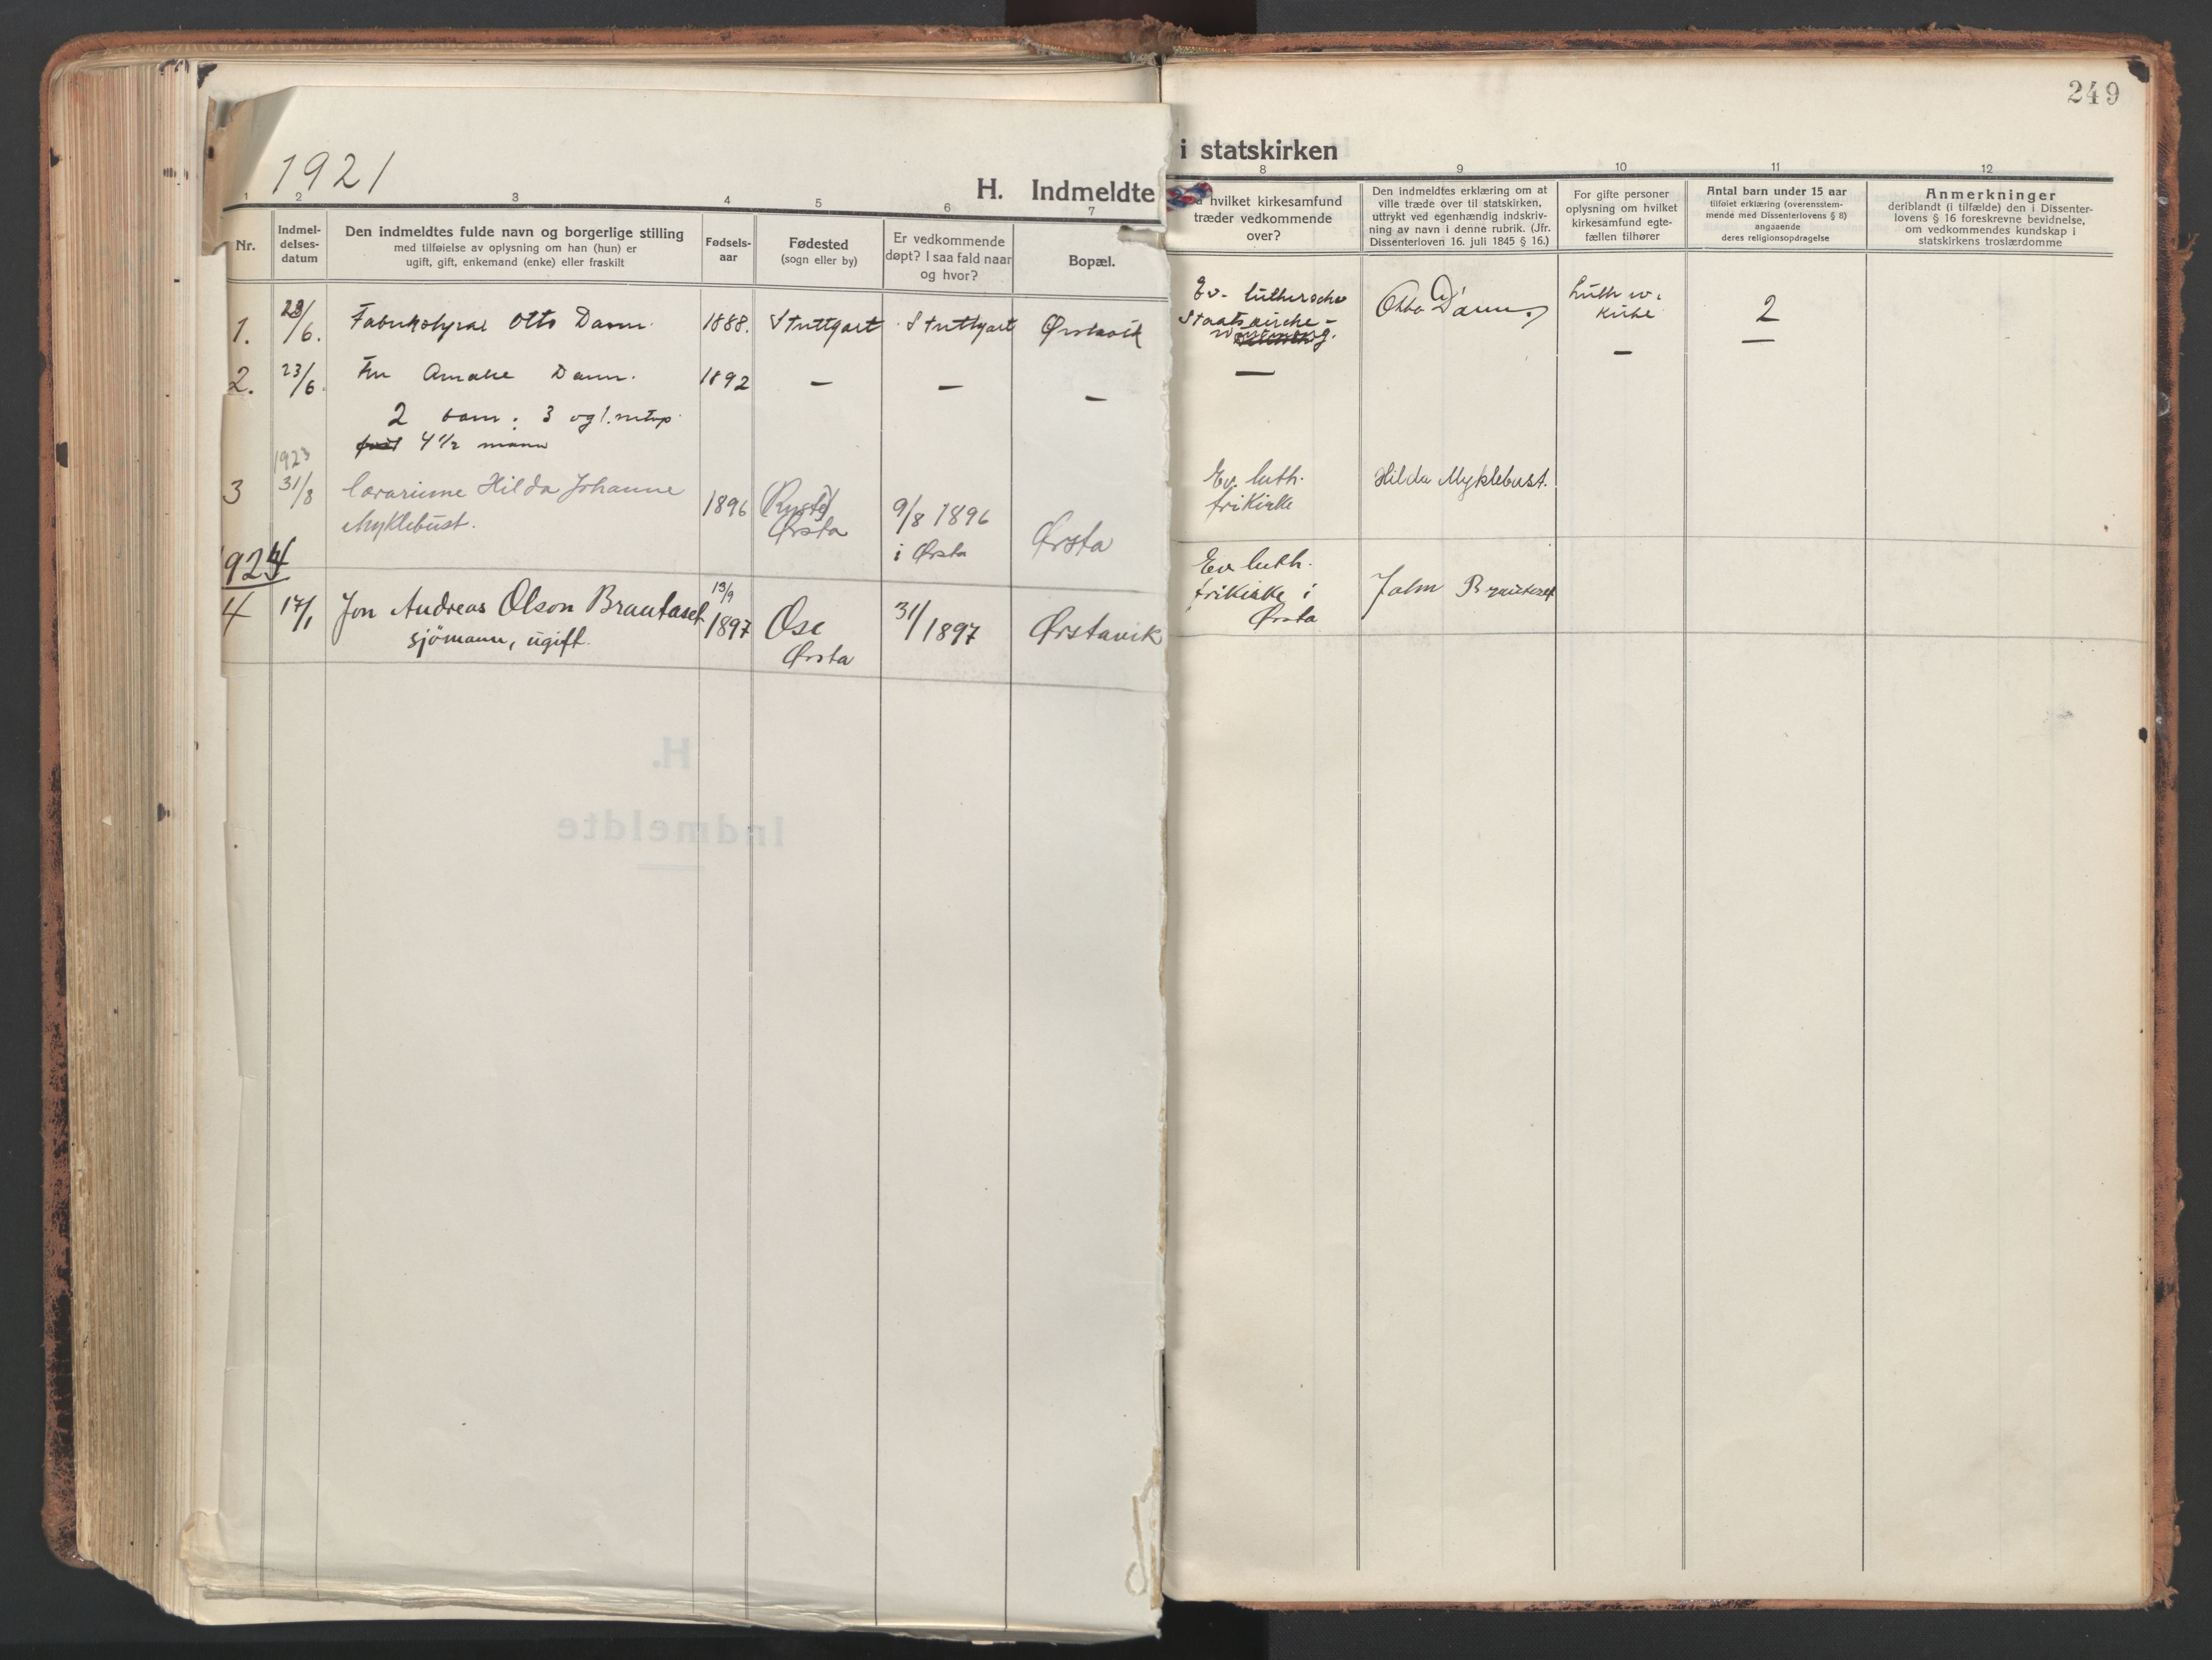 249
1921
H. Indmeldte
i statskirken
1
2
3
4
5
6
7
8
9
10
11
12
Nr.
Indmel-
delses-
datum
Den indmeldtes fulde navn og borgerlige stilling
med tilføielse av oplysning om han (hun) er
ugift, gift, enkemand (enke) eller fraskilt
Fødsels-
aar
Fødested
(sogn eller by)
Er vedkommende
døpt? I saa fald naar
og hvor?
Bopæl.
hvilket kirkesamfund
træder vedkommende
over?
Den indmeldtes erklæring om at
ville træde over til statskirken,
uttrykt ved egenhændig indskriv-
ning av navn i denne rubrik. (Jfr.
Dissenterloven 16. juli 1845 § 16.)
For gifte personer
oplysning om hvilket
kirkesamfund egte-
fællen tilhører
Antal barn under 15 aar
tilføiet erklæring (overensstem-
mende med Dissenterlovens § 8)
angaaende
deres religionsopdragelse
Anmerkninger
deriblandt (i tilfælde) den i Dissenter-
lovens § 16 foreskrevne bevidnelse,
om vedkommendes kundskap i
statskirkens troslærdomme
1.
23/6.
Otto Dann.
1888.
Stuttgart
Stuttgart
Ørstavik
Ev. luthersche
Staatskirche -
Otto Dann.
Luth.
kirke
2
2.
23/6.
Fru Amalie Dann.
1892
—
—
—
—
—
—
2 barn: 3 og
4 1/2
1923
3
31/8
Hilda Johanne
Myklebust.
1896
Ørsta
9/8 1896
i Ørsta
Ørsta
Ev. luth.
frikirke
Hilda Myklebust.
1924
4
17/1
Jon Andreas Olson Brautaset
sjömann, ugift.
13/9
1897
Ose
Ørsta
31/ 1897
Ørstavik
Ev. luth.
frikirke i
Ørsta
John Brautaset
H.
Indmeldte